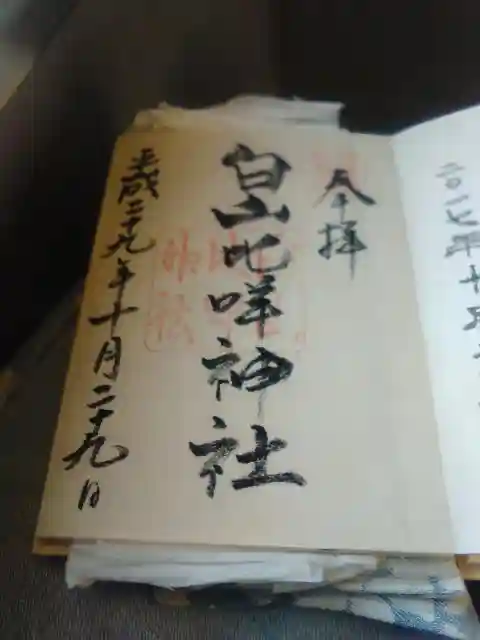 奉拝
白山比咩神社
平成二十九年十月二十九日
二〇一七年十月